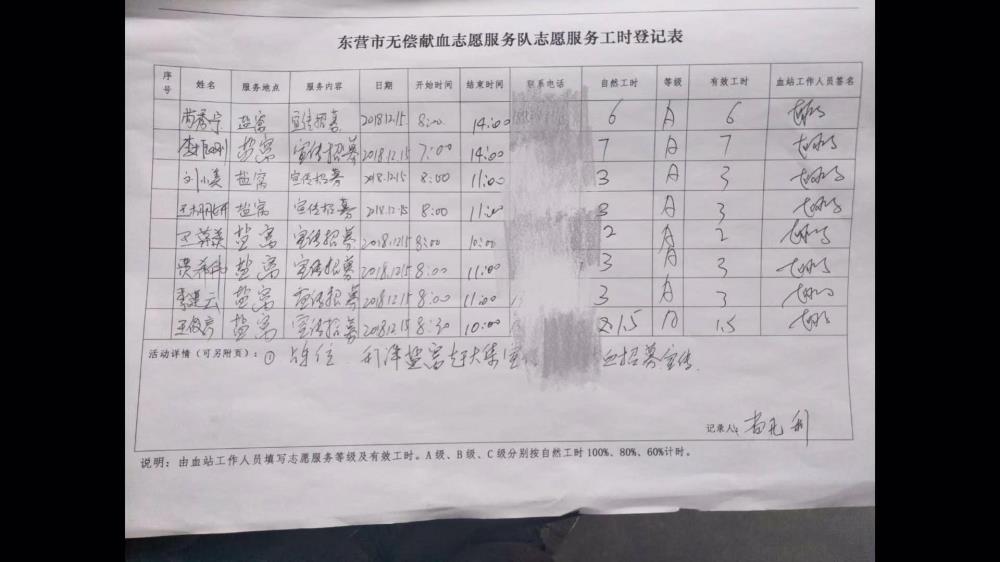 东营市无偿献血志愿服务队志愿服务工时登记表
序号 姓名 服务地点 服务内容 日期 开始时间 结束时间 联系电话 自然工时 等级 有效工时 血站工作人员签名
盐窝 宣传招募 2018.12.15 8:00 14:00 6 A 6
盐窝 宣传招募 2018.12.15 7:00 14:00 7 A 7
刘小美 盐窝 宣传招募 2018.12.15 8:00 11:00 3 A 3
盐窝 宣传招募 2018.12.15 8:00 11:00 3 A 3
盐窝 宣传招募 2018.12.15 8:00 10:00 2 A 2
盐窝 宣传招募 2018.12.15 8:00 11:00 3 A 3
李建云 盐窝 宣传招募 2018.12.15 8:00 11:00 3 A 3
王俊亭 盐窝 宣传招募 2018.12.15 8:30 10:00 1.5 A 1.5
活动详情（可另附页）：① 利津盐窝赶大集宣 血招募宣传.
记录人:
说明：由血站工作人员填写志愿服务等级及有效工时。A级、B级、C级分别按自然工时100%、80%、60%计时。